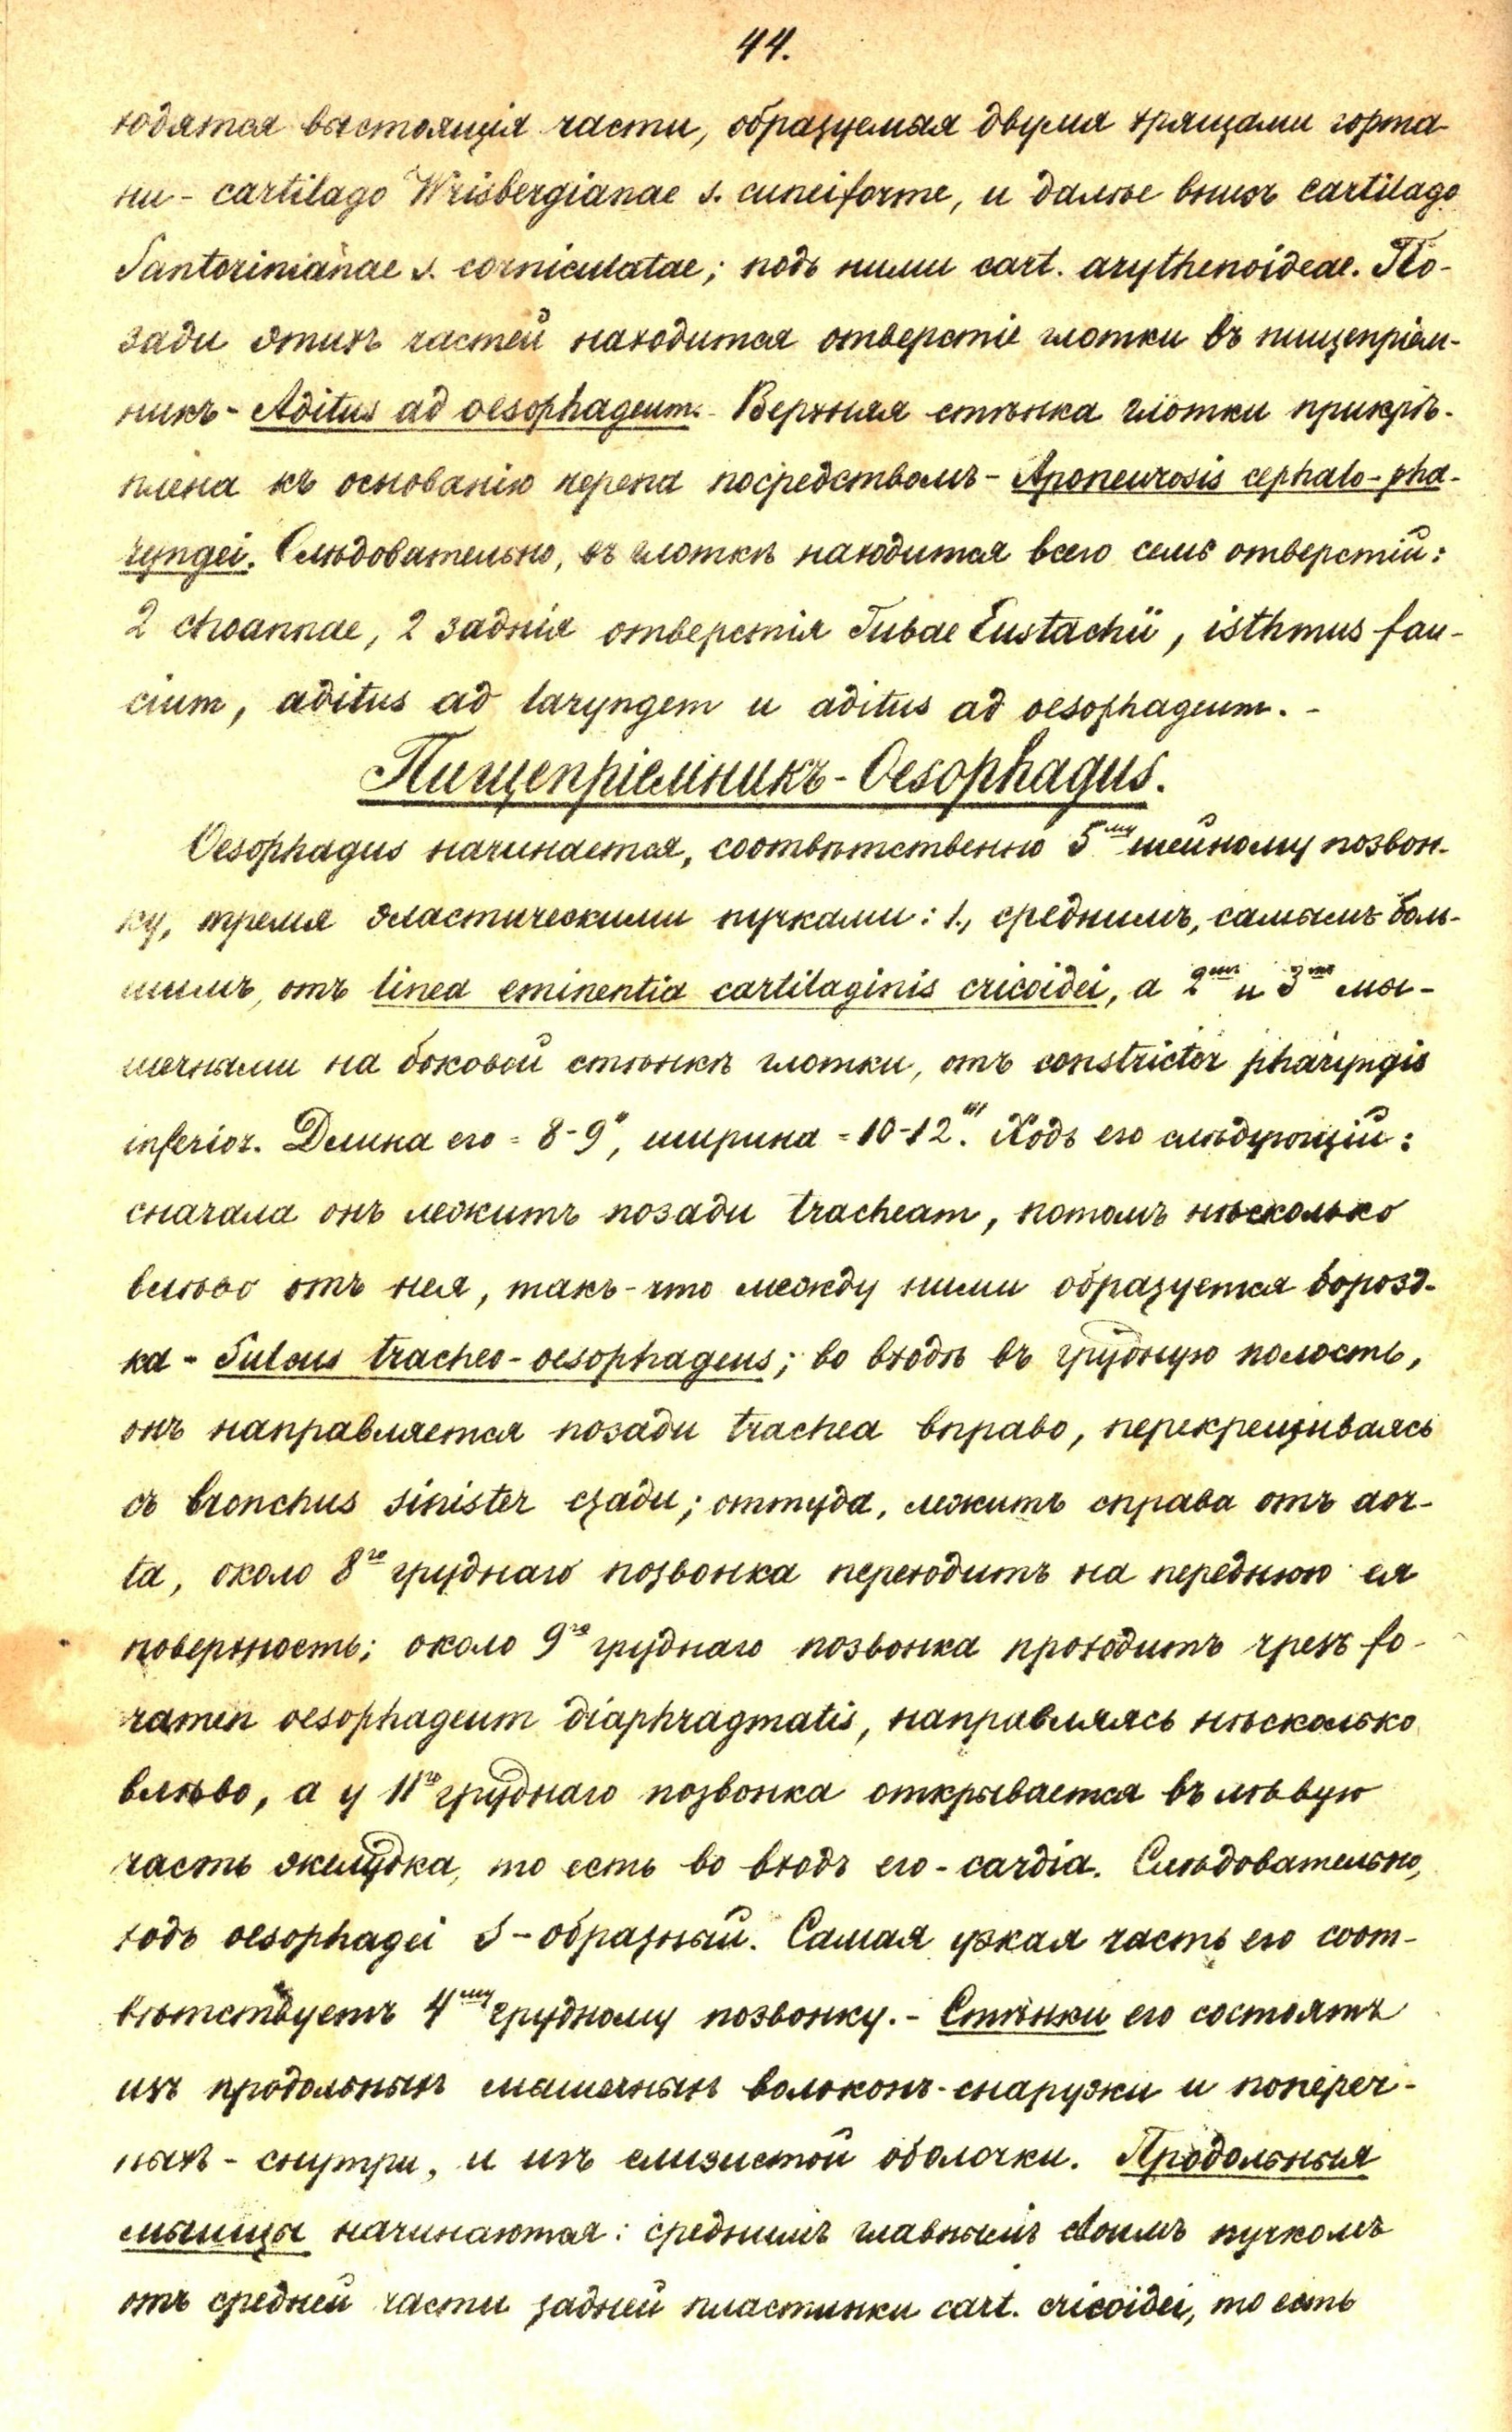 44.
ходятся выстоящія части, образуемыя двумя хрящами горта-
ни - cartilago Wrisbergianae s. cuneiforme, и далѣе внизъ cartilago
Santorinianae s. corniculatae; подъ ними cart. arythenoideae. По-
зади этихъ частей находится отверстіе глотки въ пищепріем-
никъ - Aditus ad oesophageum. - Верхняя стѣнка глотки прикрѣ-
плена къ основанію черепа посредствомъ - Aponeurosis cephalo-pha-
ryngei. Слѣдовательно, въ глоткѣ находится всего семь отверстій:
2 choannae, 2 заднія отверстія Tubae Eustachii, isthmus fau-
cium, aditus ad laryngem и aditus ad oesophageum. -
Пищепріемникъ - Oesophagus.
Oesophagus начинается, соотвѣтственно 5му шейному позвон-
ку, тремя эластическими пучками: 1., среднимъ, самымъ боль-
шимъ, отъ linea eminentia cartilaginis cricoidei, а 2мя и 3мя мы-
шечными на боковой стѣнкѣ глотки, отъ constrictor pharyngis
inferior. Длина его = 8-9", ширина = 10-12"'. Ходъ его слѣдующій:
сначала онъ лежитъ позади tracheam, потомъ нѣсколько
влѣво отъ нея, такъ-что между ними образуется борозд-
ка - Sulcus tracheo-oesophageus; во входѣ въ грудную полость,
онъ направляется позади trachea вправо, перекрещиваясь
съ bronchus sinister сзади; оттуда, лежитъ справа отъ aor-
ta, около 8го груднаго позвонка переходитъ на переднюю ея
поверхность; около 9го груднаго позвонка проходитъ чрезъ fo-
ramen oesophageum diaphragmatis, направляясь нѣсколько
влѣво, а у 11го груднаго позвонка открывается въ лѣвую
часть желудка, то есть во входъ его - cardia. Слѣдовательно,
ходъ oesophagei S-образный. Самая узкая часть его соот-
вѣтствуетъ 4му грудному позвонку. - Стѣнки его состоятъ
изъ продольныхъ мышечныхъ волоконъ - снаружи и попереч-
ныхъ - снутри, и изъ слизистой оболочки. Продольныя
мышцы начинаются: среднимъ главнымъ своимъ пучкомъ
отъ средней части задней пластинки cart. cricoidei, то есть